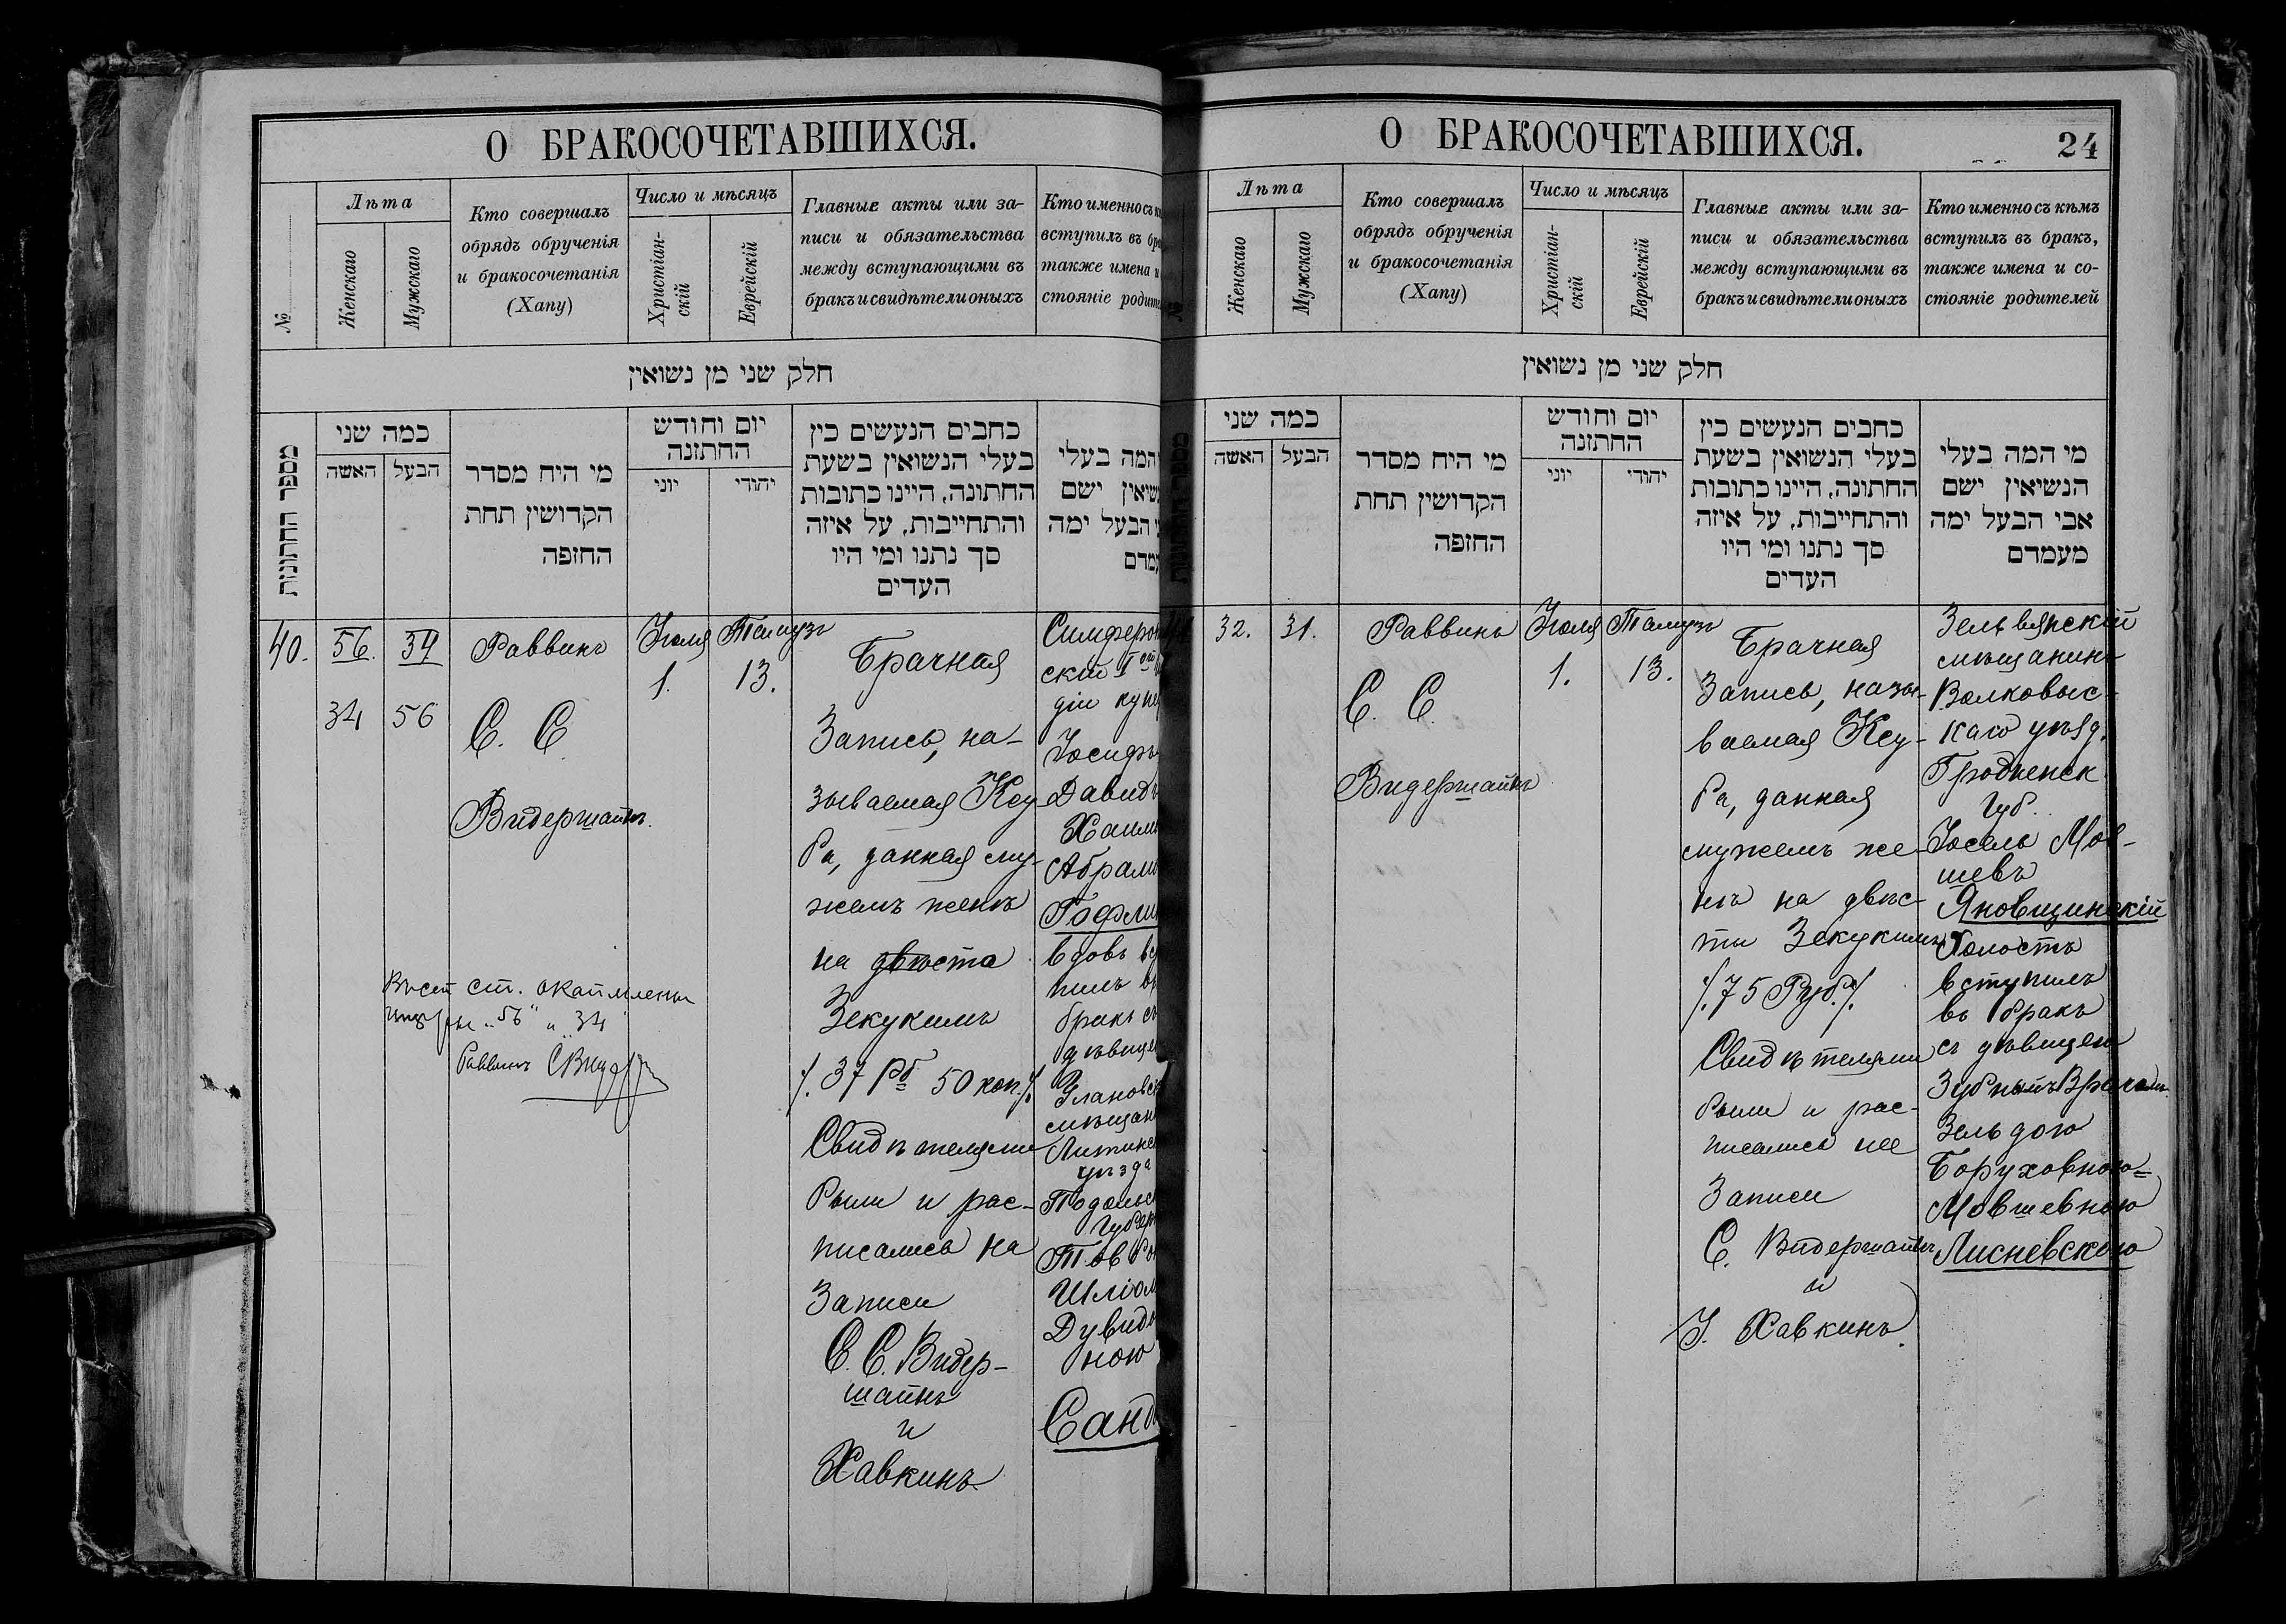 О БРАКОСОЧЕТАВШИХСЯ.
№
Лѣта
Женскаго
Мужскаго
Кто совершалъ
обрядъ обрученія
и бракосочетанія
(Хапу)
Число и мѣсяцъ
Христіан-
скій
Еврейскій
Главные акты или за-
писи и обязательства
между вступающими въ
бракъ и свидѣтели оныхъ
Кто именно съ к
вступилъ въ бра
также имена и
стояніе родите
חלק שני מן נשואין
מספר החתונות
כמה שני
האשה
הבעל
מי היח מסדר
הקדושין תחת
החופה
יום וחודש
החתונה
יוני
יהודי
כתבים הנעשים בין
בעלי הנשואין בשעת
החתונה, היינו כתובות
והתחייבות, על איזה
סך נתנו ומי היו
העדים
המה בעלי
שיאין ישם
י הבעל ימה
עמדם
40.
56.
34
34
56
Раввинъ
С. С.
Видершайнъ.
Іюля
1.
Тамузъ
13.
Брачная
Запись, на-
зываемая Ксу
ба, данная му-
жемъ женѣ
на двѣста
Зекукимъ
/. 37 Рб 50 коп./.
Свидѣтелями
были и рас-
писались на
Записи
С. С. Видер-
шайнъ
и
Хавкинъ.
Симфероп
скій 1ой
діи купе
Іосифъ
Давидъ
Хаим
Абрам
Гофли
вдовъ вс
пилъ въ
бракъ съ
дѣвице
Улановс
мѣщан
Литинс
уѣзда
Подольс
Губер
Товбо
Шліом
Дувидо
ною
Санд
ст.
"56" и 34
Раввинъ С Видер
О БРАКОСОЧЕТАВШИХСЯ.
24
Лѣта
Женскаго
Мужскаго
Кто совершалъ
обрядъ обрученія
и бракосочетанія
(Хапу)
Число и мѣсяцъ
Христіан-
скій
Еврейскій
Главные акты или за-
писи и обязательства
между вступающими въ
бракъ и свидѣтели оныхъ
Кто именно съ кѣмъ
вступилъ въ бракъ,
также имена и со-
стояніе родителей
חלק שני מן נשואין
כמה שני
האשה
הבעל
מי היח מסדר
הקדושין תחת
החופה
יום וחודש
החתונה
יוני
יהודי
כתבים הנעשים בין
בעלי הנשואין בשעת
החתונה, היינו כתובות
והתחייבות, על איזה
סך נתנו ומי היו
העדים
מי המה בעלי
הנשיאין ישם
אבי הבעל ימה
מעמדם
32.
31.
Раввинъ
С. С.
Видершайнъ
Іюля
1.
Тамузъ
13.
Брачная
Запись, назы-
ваемая Ксу-
ба, данная
мужемъ же-
нѣ на двѣс-
ти Зекукимъ
/. 75 Руб./.
Свидѣтелями
были и рас-
писались на
Записи
С. Видершайнъ
и
І. Хавкинъ.
Зельвянскій
мѣщанинъ
Волковыс-
каго уѣзд.
Гродненск.
Губ.
Іосель Мов-
шевъ
Яновщинскій
Холостъ
вступилъ
въ бракъ
съ дѣвицею
Зубнымъ Врачомъ
Зельдою
Боруховною=
Мовшевною
Лисневскою